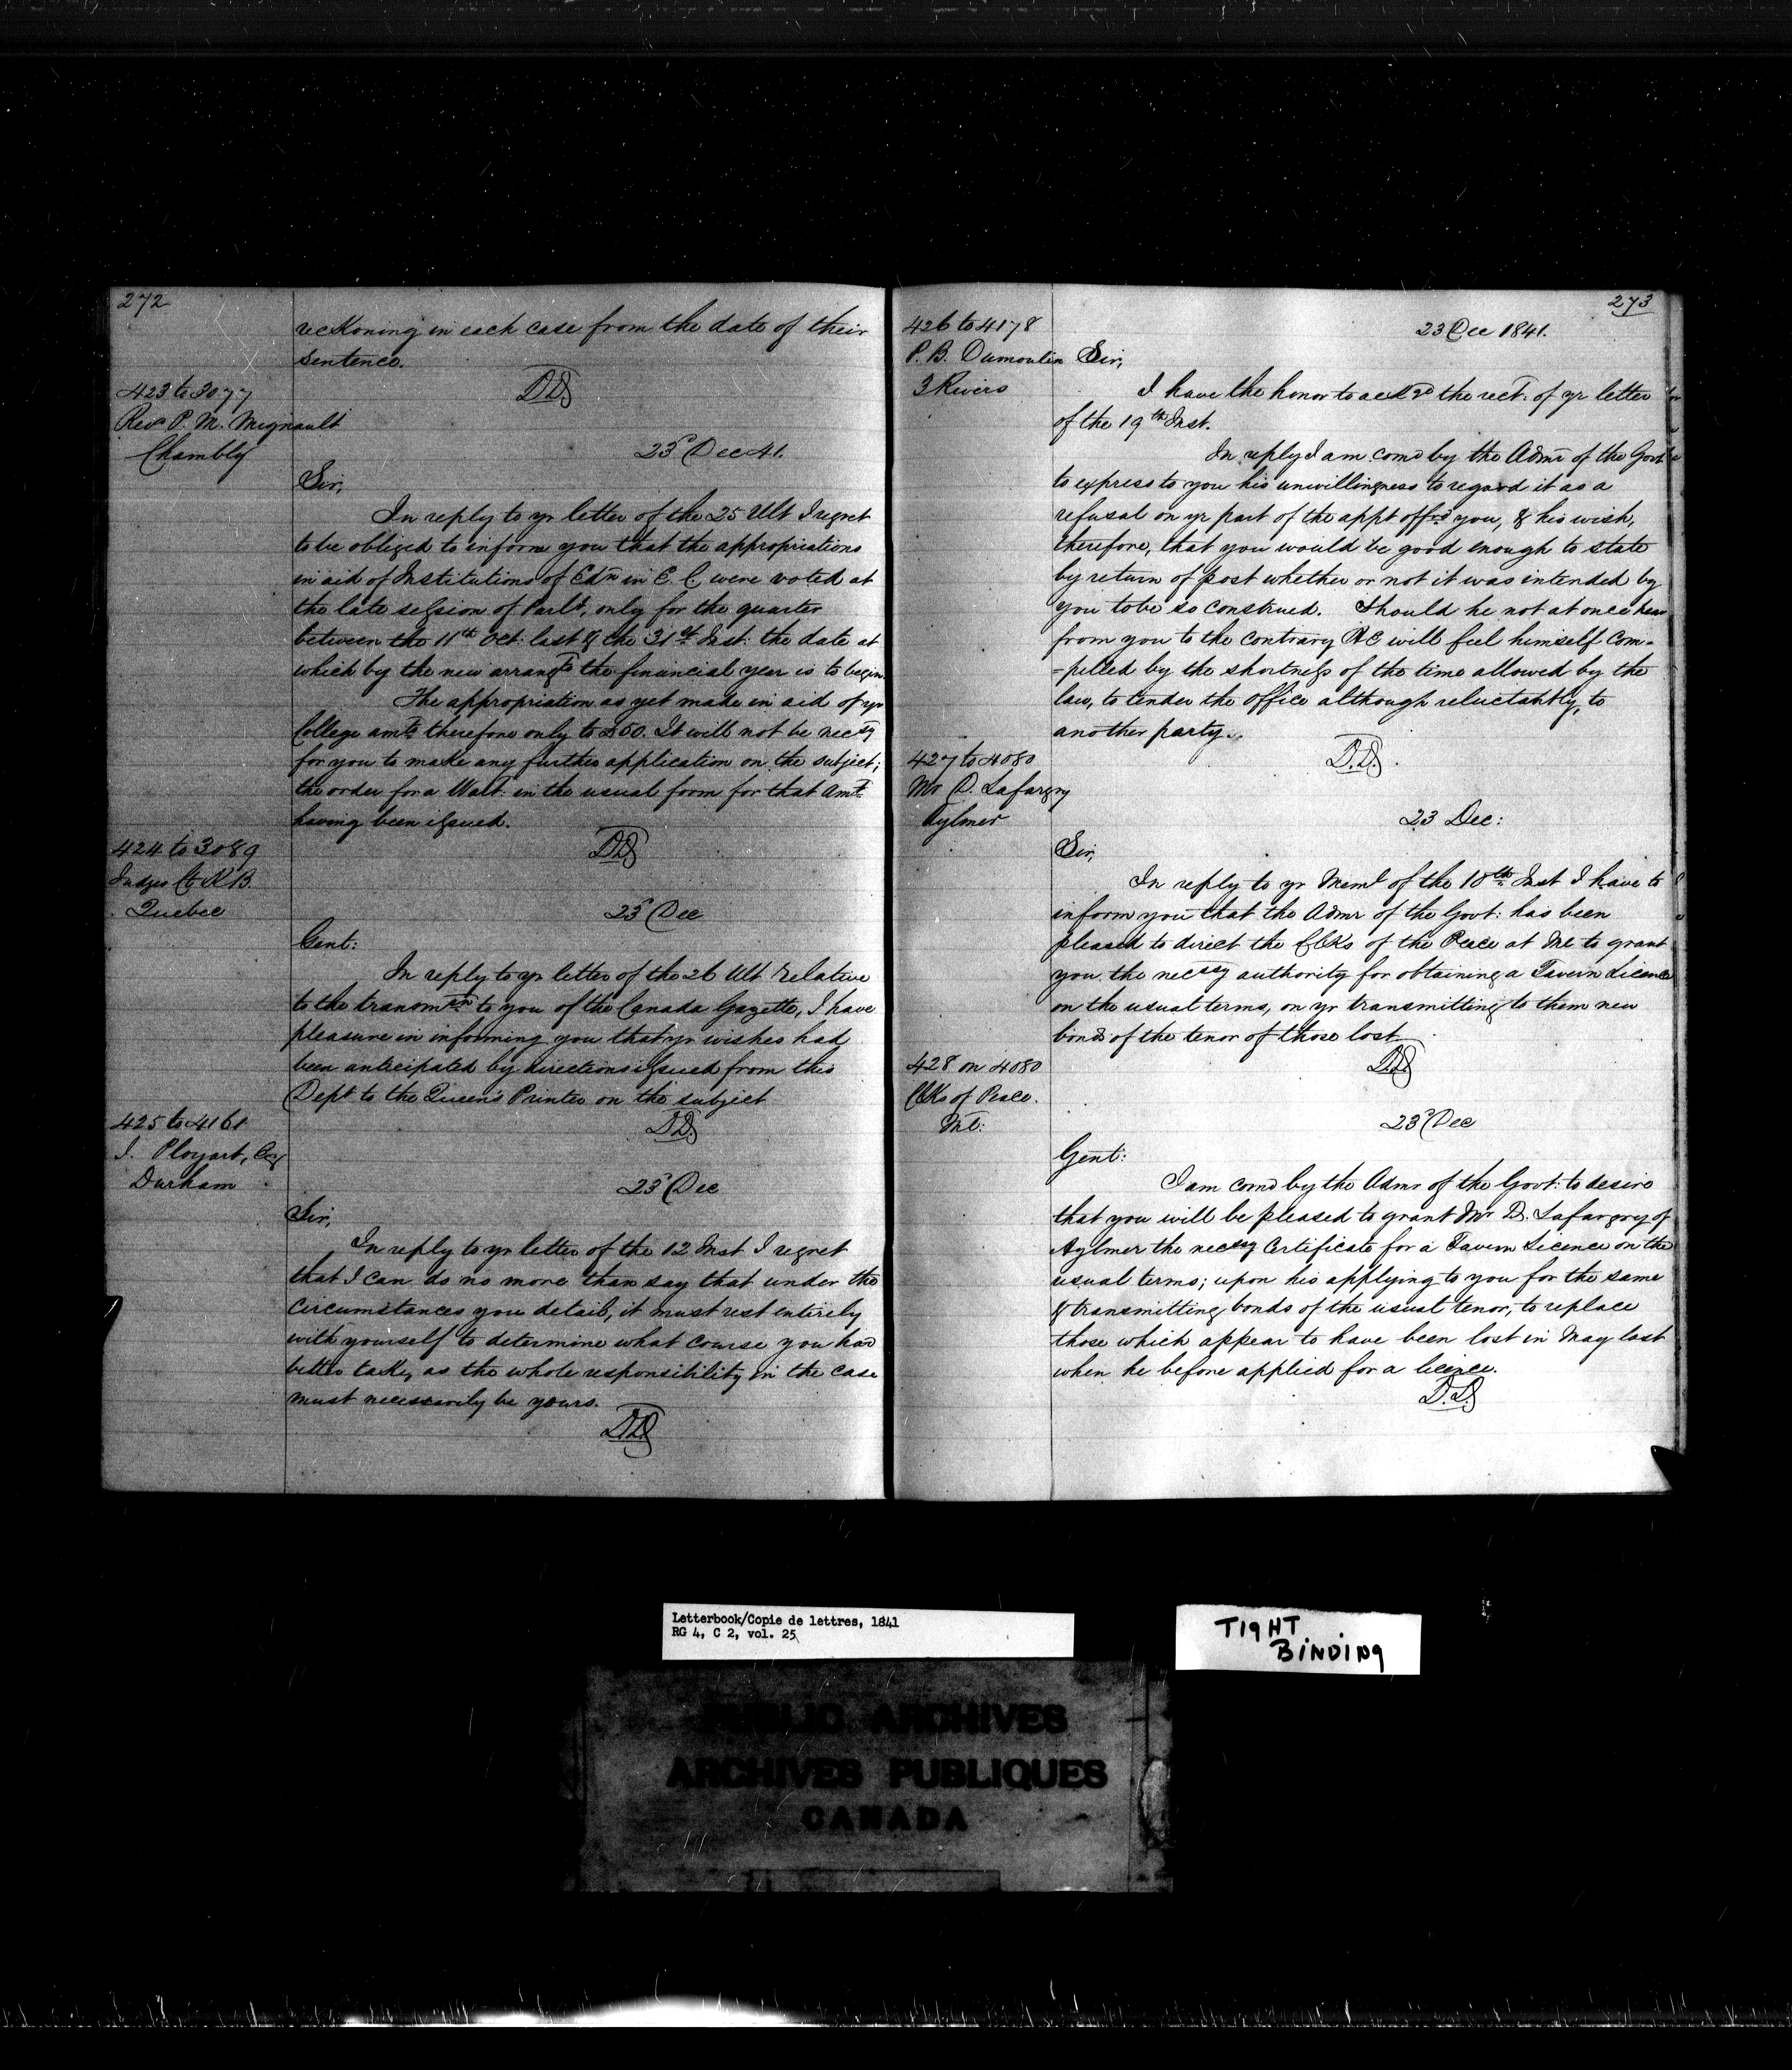 272
reckoning in each case from the date of their
sentence.
DD
423 to 3077
Revd P. M. Mignault
Chambly
23d Dec 41.
Sir,
In reply to yr letter of the 25 Ult I regret
to be obliged to inform you that the appropriations
in aid of Institutions of Edn in E. C. were voted at
the late session of Parlt, only for the quarter
between the 11th Oct: last & the 31st Inst: the date at
which by the new arrangts the financial year is to begin.
The appropriation as yet made in aid of yr
College amts therefore only to £50. It will not be necsy
for you to make any further application on the subject;
the order for a Wart: in the usual form for that amt
having been issued.
DD
424 to 3089
Judges Ct K B.
Quebec
23d Dec
Gent:
In reply to yr letter of the 26 Ult relative
to the transmsn to you of the Canada Gazette, I have
pleasure in informing you that yr wishes had
been anticipated by directions issued from this
Dept to the Queen's Printer on the subject
DD.
425 to 4161
J. Ployart, Esq
Durham
23d Dec
Sir,
In reply to yr letter of the 12 Inst I regret
that I can do no more than say that under the
circumstances you detail, it must rest entirely
with yourself to determine what course you had
better take, as the whole responsibility in the case
must necessarily be yours.
DD
273
23 Dec 1841.
426 to 4178
P. B. Dumoulin
3 Rivers
Sir,
I have the honor to ackge the rect. of yr letter
of the 19th Inst.
In reply I am comd by the Admr of the Govt
to express to you his unwillingness to regard it as a
refusal on yr part of the appt offrd you, & his wish,
therefore, that you would be good enough to state
by return of post whether or not it was intended by
you to be so construed. Should he not at once hear
from you to the contrary HE will feel himself com-
-pelled by the shortness of the time allowed by the
law, to tender the office although reluctantly, to
another party.
D.D.
427 to 4080
Mr D. Lafargry
Aylmer
23 Dec:
Sir,
In reply to yr Meml of the 18th Inst I have to
inform you that the Admr of the Govt: has been
pleased to direct the Clks of the Peace at Ml to grant
you the necssy authority for obtaining a Tavern Licence
on the usual terms, on yr transmitting to them new
bonds of the tenor of those lost
DD
428 on 4080
Clks of Peace.
Ml:
23d Dec
Gent:
I am comd by the Admr of the Govt: to desire
that you will be pleased to grant Mr D. Lafargry of
Aylmer the necssy Certificate for a Tavern Licence on the
usual terms; upon his applying to you for the same
& transmitting bonds of the usual tenor, to replace
those which appear to have been lost in May last
when he before applied for a licence.
D.D.
Letterbook/Copie de lettres, 1841
RG 4, C 2, vol. 25
TIGHT
BINDING
PUBLIC ARCHIVES
ARCHIVES PUBLIQUES
CANADA